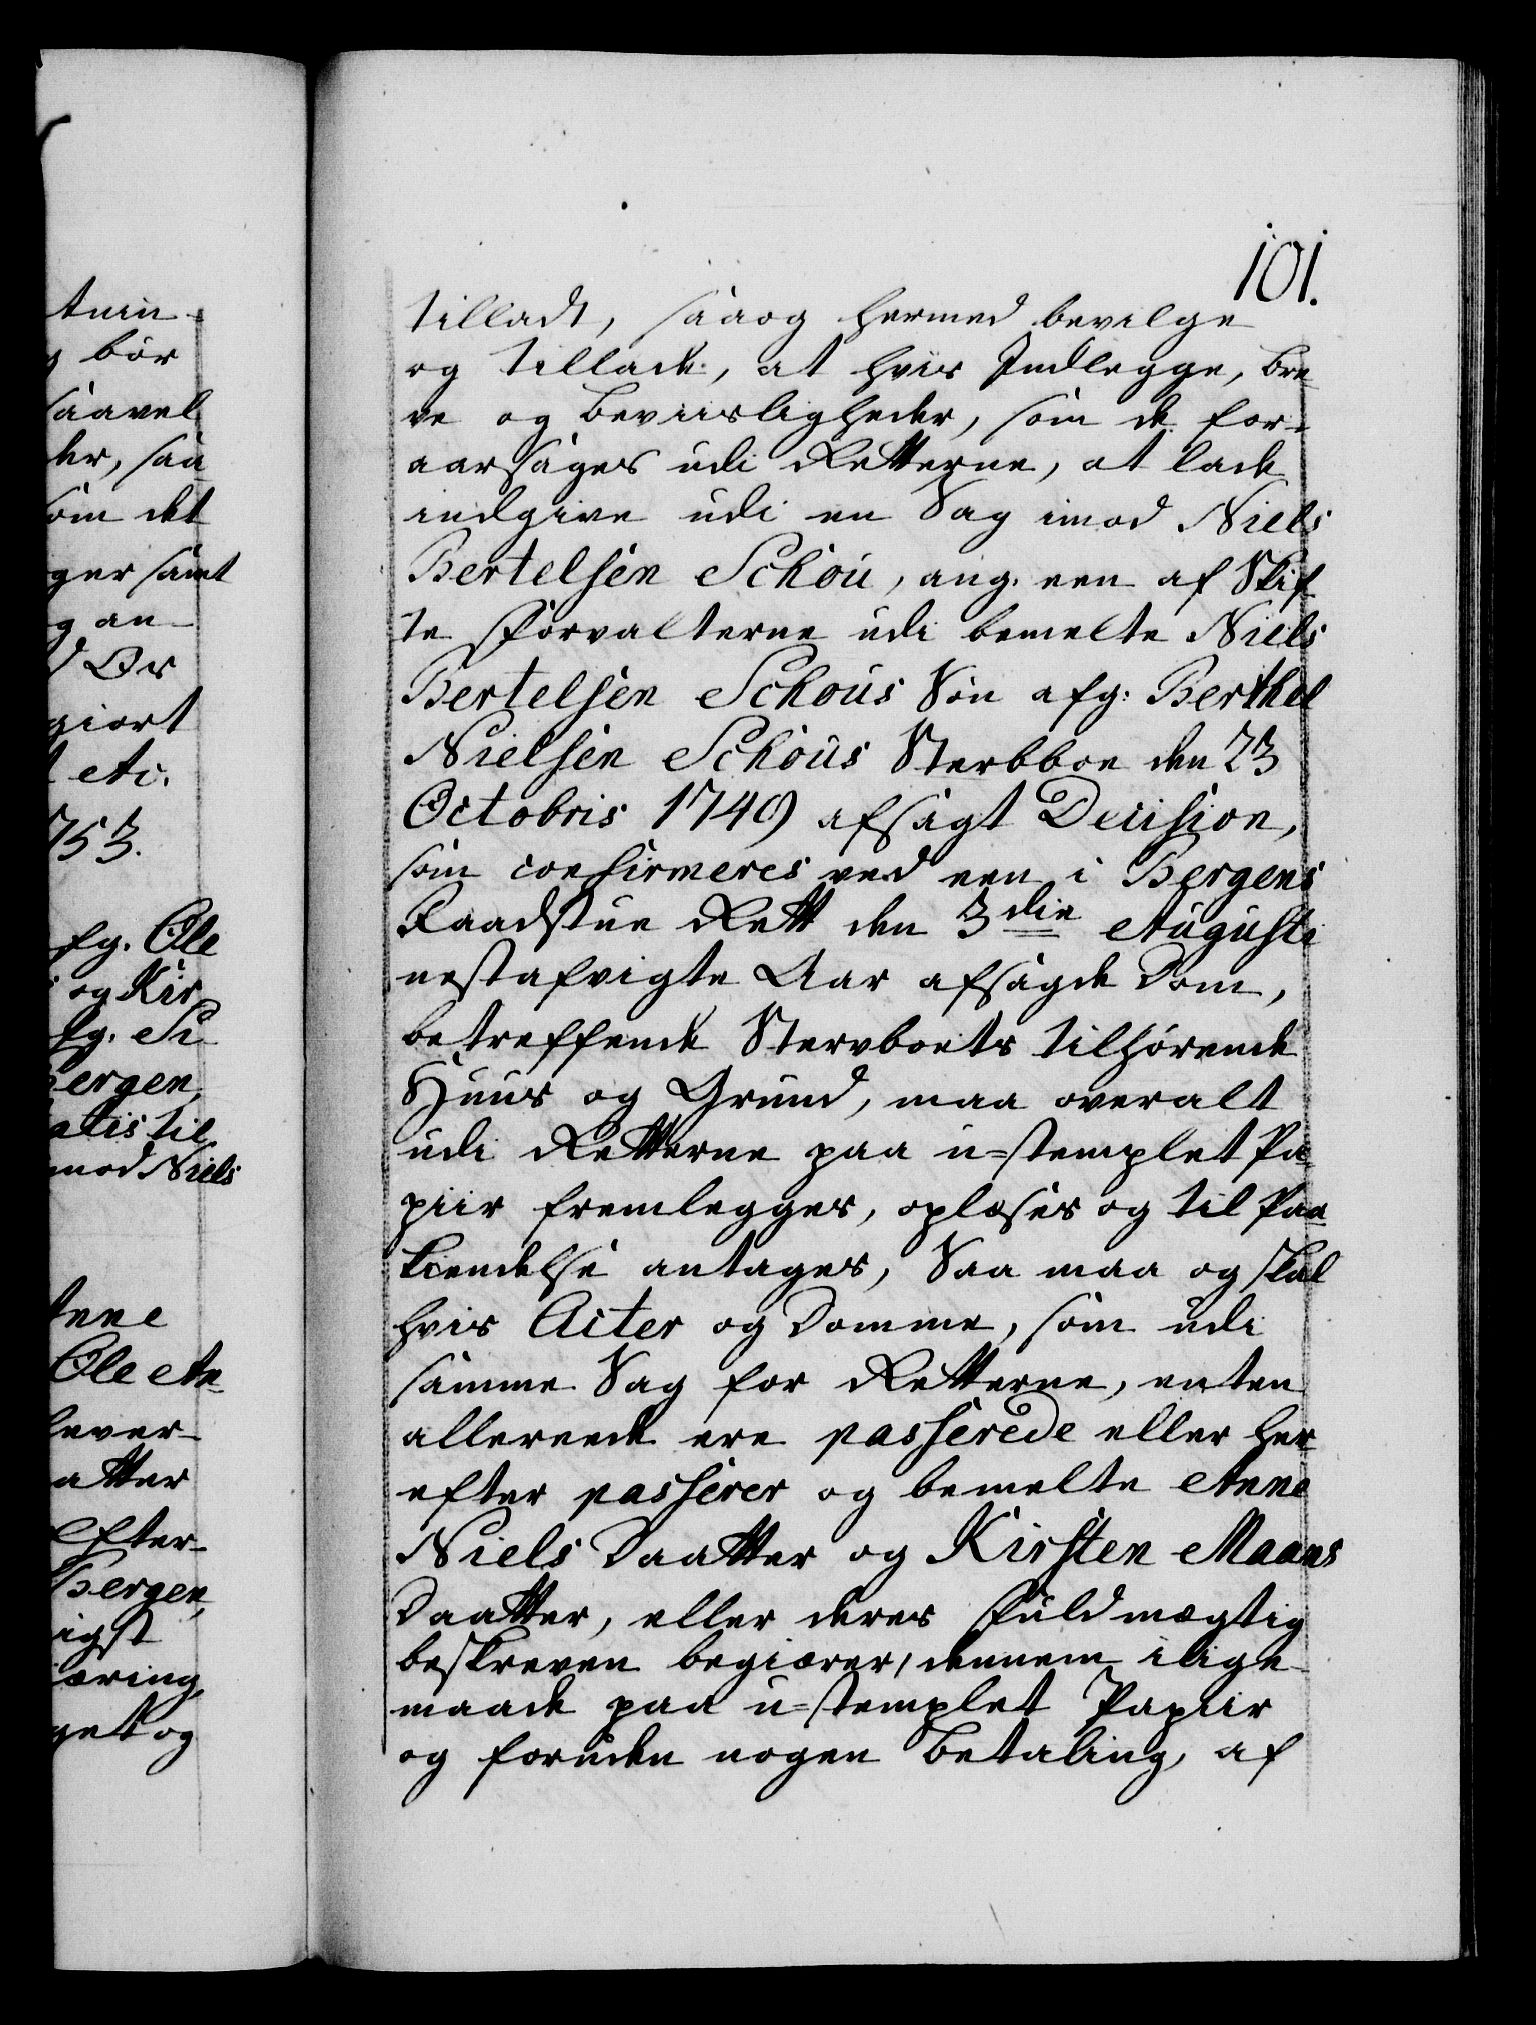 101.
tilladt, saaog hermed bevilge
og tillade, at hvis Indlegge, Bre
ve og Beviisligheder, som de for-
aarsages udi Retterne, at lade
indgive udi en Sag imod Niels
Bertelsen Schou, ang: een af Skif
te Forvalterne udi bemelte Niels
Bertelsen Schous Søn afg: Berthel
Nielsen Schous Sterbboe den 23
Octobris 1749 afsagt Decision,
som confirmeres ved een i Bergens
Raadstue Rett den 3die Augusti
nestafvigte Aar afsagde Dom,
betreffende Stervboets tilhørende
Huus og Grund, maa overalt
udi Retterne paa u=stemplet Pa
piir fremlegges, oplæses og til Paa
kiendelse antages, Saa maa og skal
hvis Acter og Domme, som udi
samme Sag for Retterne, enten
allereede ere passerede eller her
efter passerer og bemelte Anne
Niels Daatter og Kirsten Maans
Daatter, eller deres Fuldmægtig
beskreven begiærer, dennem ilige
maade paa u=stemplet Papiir
og foruden nogen Betaling, af
bør
saavel
der, saa
som det
ger samt
g an
giort
etc.
753.
fg. Ole
og Kir
fg. Si
ergen,
atis til
mod Niels
Anne
Ole An
lever-
atter
Efter-
Bergen,
igst
æring,
get og